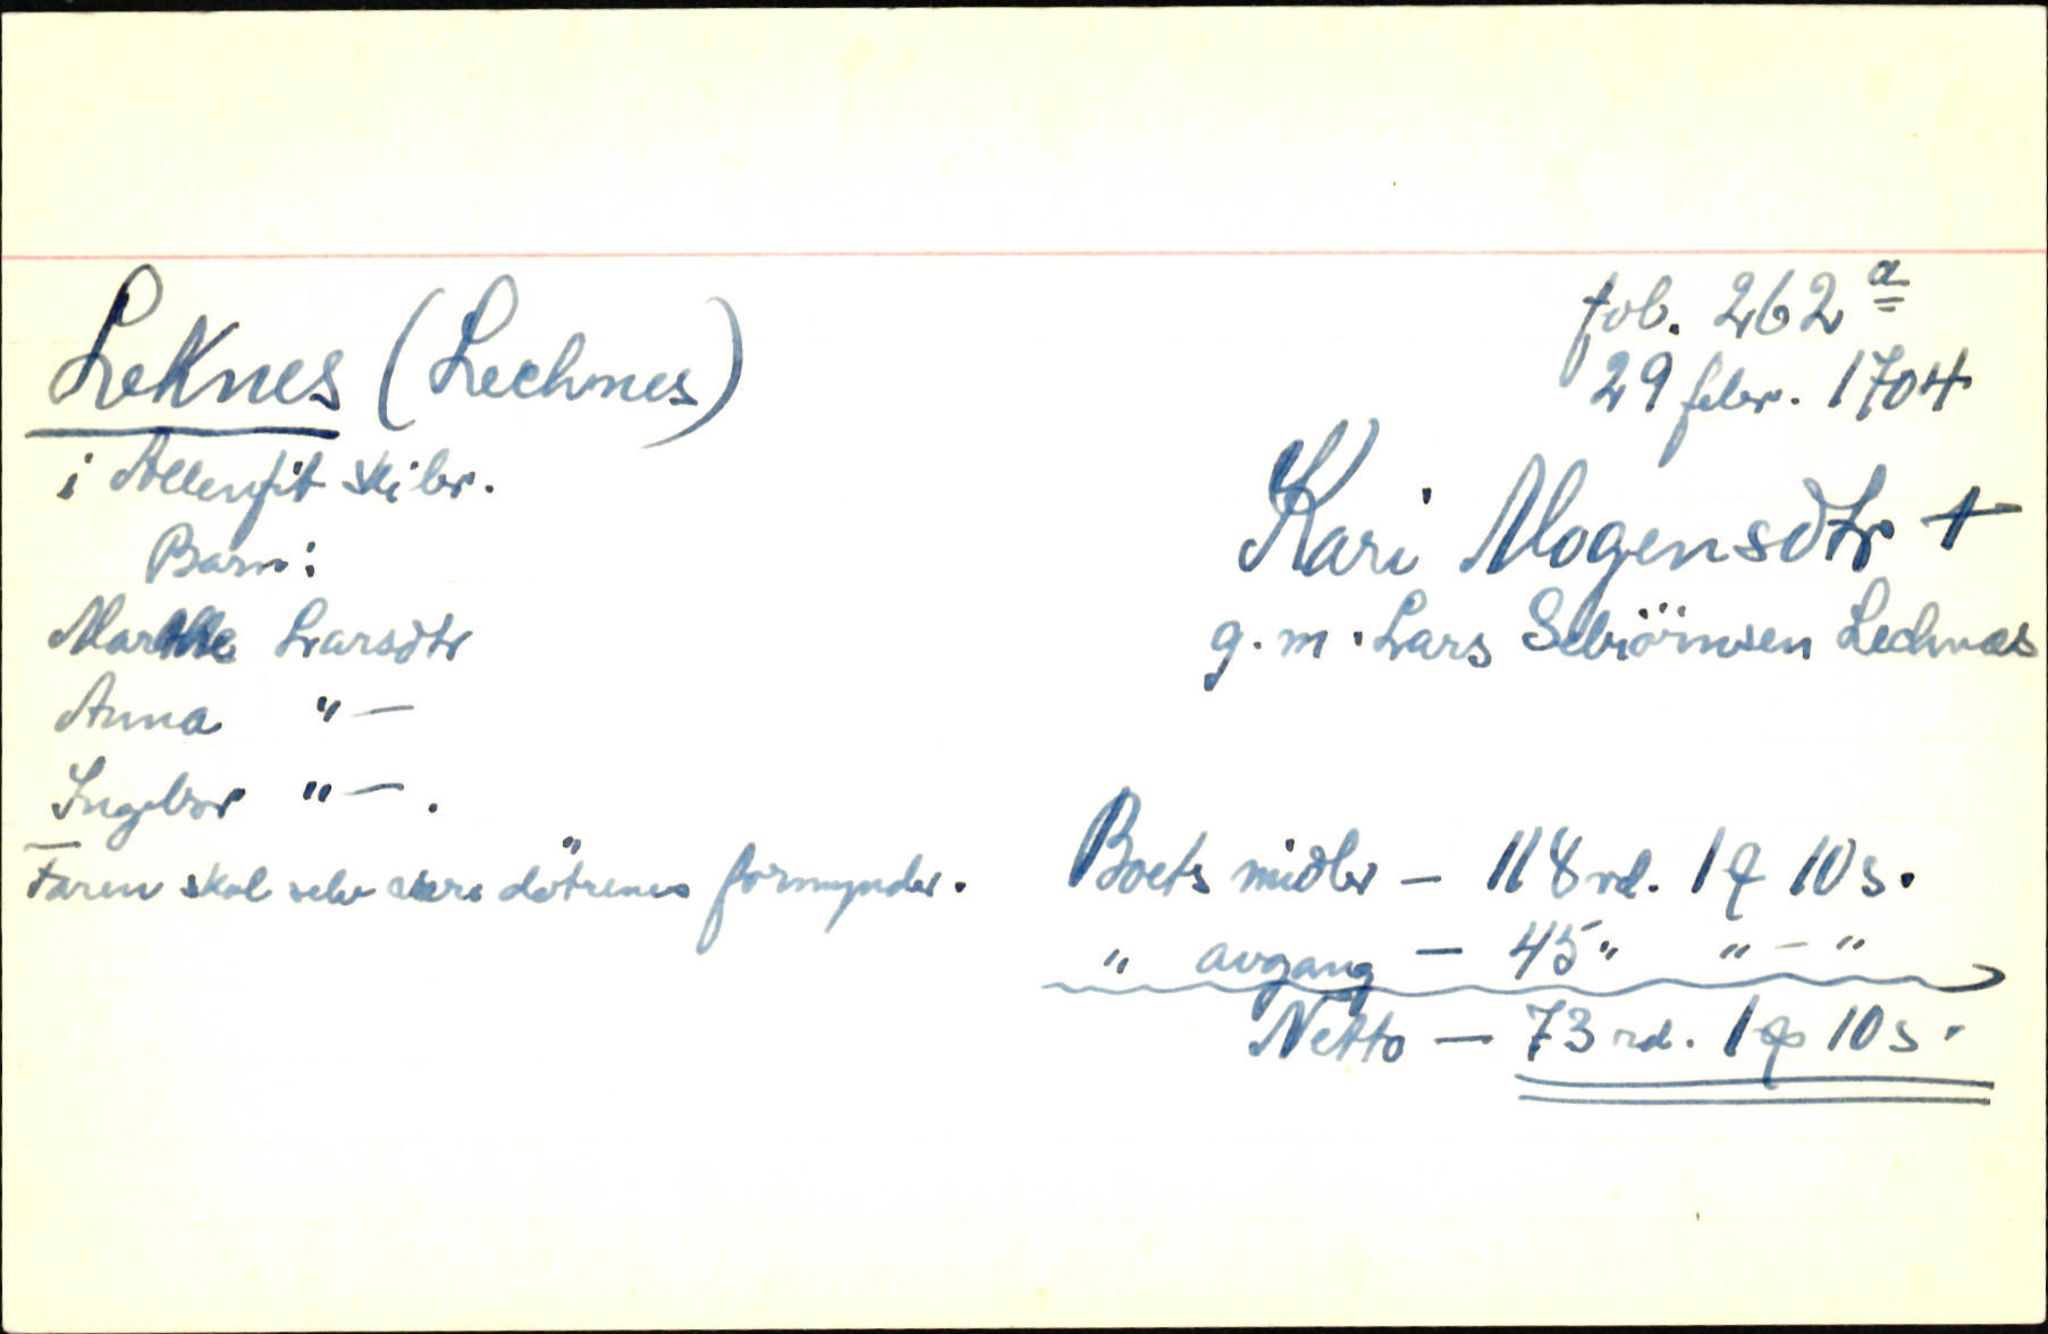 Leknes (Lechnes)
fol. 262 a
29 febr. 1704
i Allenfit skibr.
Kari Mogensdtr +
Barn:
g. m. Lars Sebiörnsen Lechnes
Marthe Larsdtr
Anna "—
Ingebor "— .
Faren skal selv være dötrenes formynder.
Boets midler — 118 rd. 1 10 s.
" avgang — 45 " " — "
Netto — 73 rd. 1 10 s.